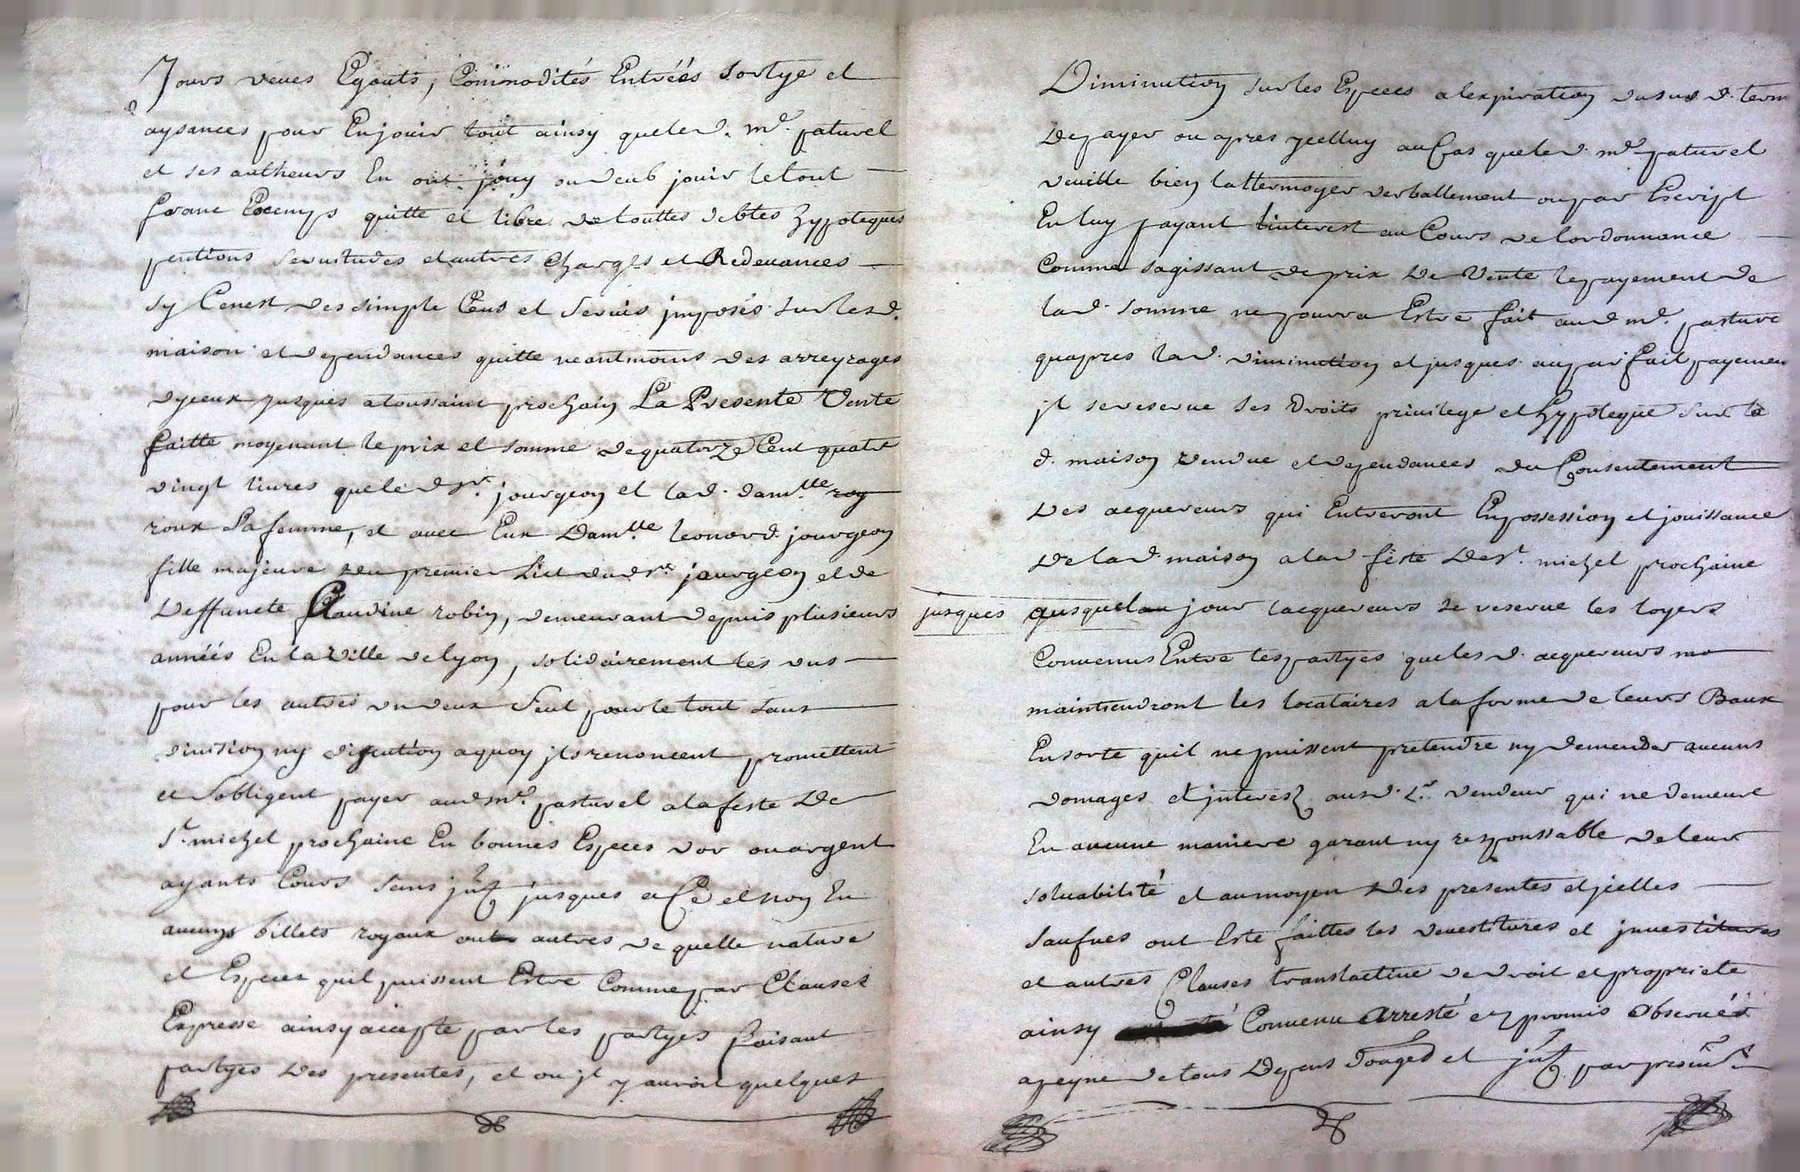 Jours veues Egouts, Commodités Entréés Sortye et
aysances pour En jouir tout ainsy que led. mr. paturel
et ses autheurs En ont jouy ou deub jouir le tout
franc Exemps quitte et libre de touttes debtes hypoteques
pentions servitudes et autres charges et Redevances
sy Cenest des simple Cens et servis jmposés sur lesd.
maison et dependances quitte neantmoins des arreyrages
dyceux jusques a toussaint prochain La Presente Vente
faitte moyenant le prix et somme de quatorze Cent quatre
vingt livres que le d sr. jourgeon et lad. damlle roy
roux sa femme, et avec Eux Damlle leonard jourgeon
fille majeure du premier Lict dud sr. jourgeon et de
Deffuncte Claudine robin, demeurant depuis plusieurs
annéés En la Ville de lyon, solidairement les uns
pour les autres un deux seul pour le tout sans
division ny discution a quoy jls renoncent promettent
et sobligent payer aud mr. pasturel a la feste De
St. michel prochaine En bonnes Especes dor ou argent
ayants Cours sans jnt jusques a Ce et non En
aucuns billets royaux autres de quelle nature
et Especes quil puissent Estre Comme par Clauses
Expresse ainsy accepté par les partyes faisant
partyes Des presentes, et ou jl y auroit quelques
Diminution sur les Especes a lexpiration dusus d. term
De payer ou apres ycelluy au Cas que led. mr paturel
veuille bien lattermoyer verballement ou par Escript
En luy payant linterest au Cours de lordonnance
Comme sagissant de prix De Vente le payement de
lad. somme ne pourra Estre fait aud mr. pasture
quapres lad. diminution et jusques au parfait payemen
jl se reserve ses Droits privilege et hypoteque sur la
d. maison vendue et dependances du Consentement
Des acquereurs qui Entreront En possession et jouissance
De lad. maison a lad feste De St. michel prochaine
jusques auquel jour lacquereurs se reserve les loyers
Convenus Entre les partyes que les d. acquereurs
maintiendront les locataires a la forme de leurs Baux
En sorte quil ne puissent pretendre ny demander aucuns
domages et jnterest aud. Sr. vendeur qui ne demeure
En aucune maniere garant ny responssable de leur
solvabilité et au moyen Des presentes et jcelles
saufves ont Esté faittes les devestitures et jnvestitures
et autres Clauses translactive de droit et proprieté
ainsy Convenu Arresté et promis Observér
a peyne de tous Depens Domages et jnt par